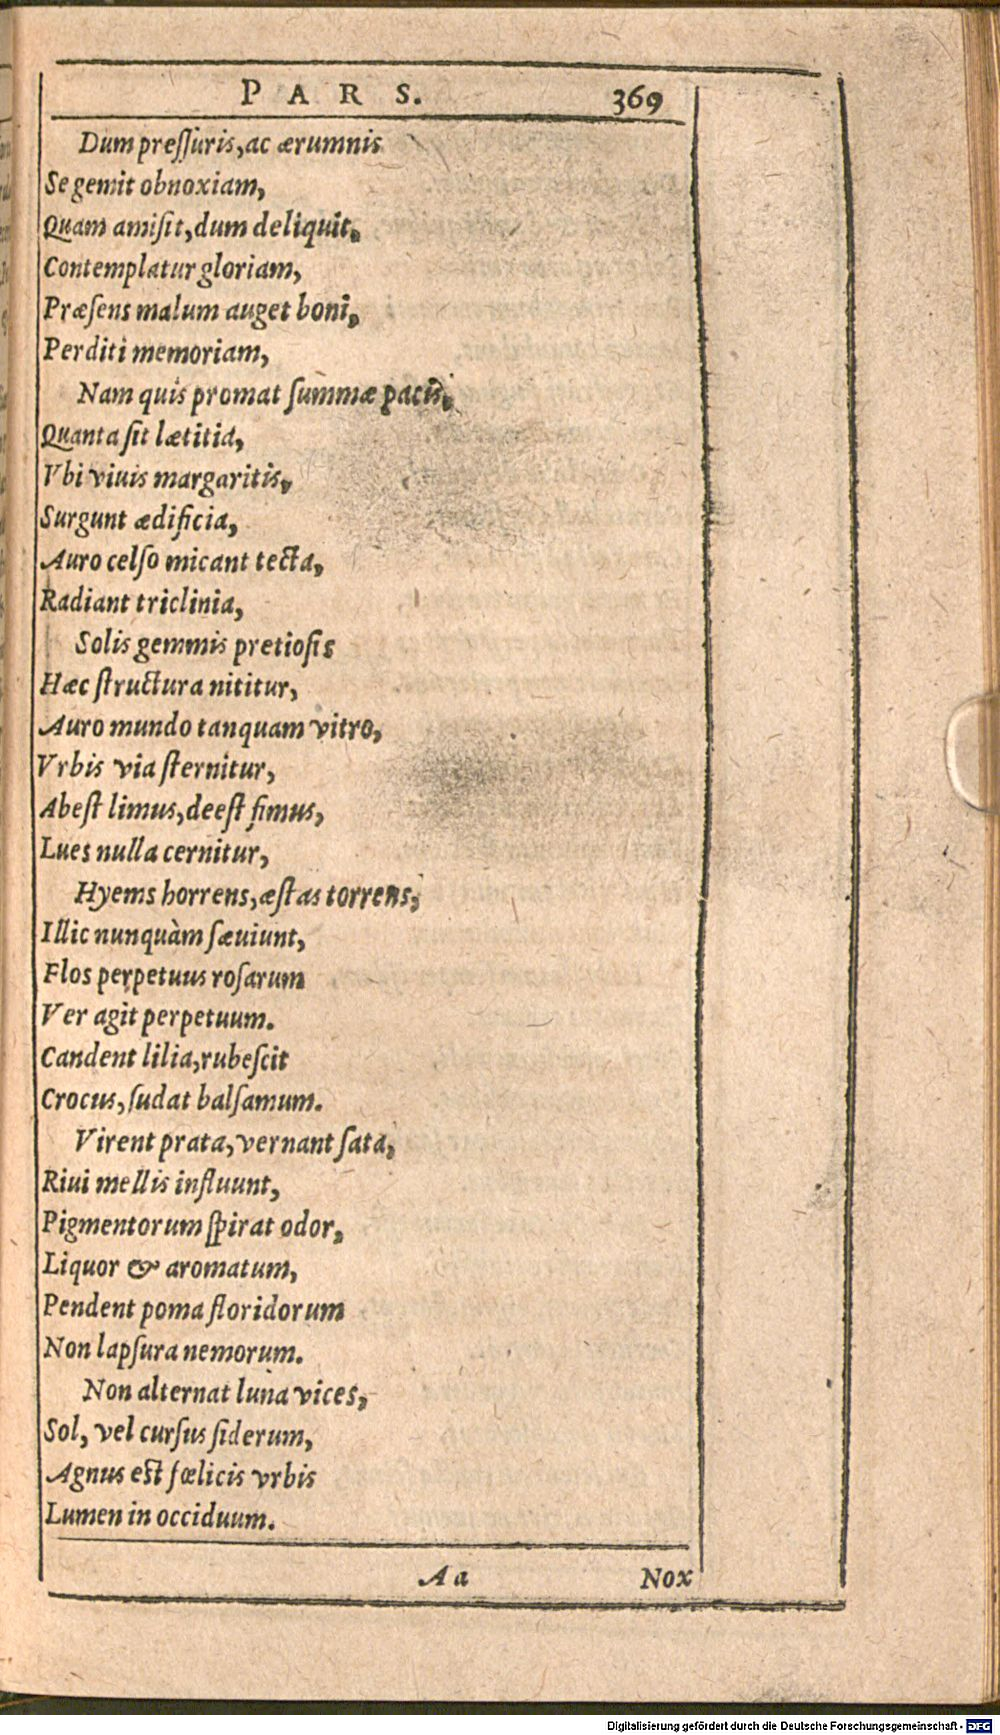 PARS. 369
Dum preſſuris, ac ærumnis
Se gemit obnoxiam,
Quam amiſit, dum deliquit,
Contemplatur gloriam,
Præſens malum auget boni,
Perditi memoriam,
Nam quis promat ſummæ pacis,
Quanta ſit lætitia,
Vbi viuis margaritis,
Surgunt ædificia,
Auro celſo micant tecta,
Radiant triclinia,
Solis gemmis pretioſis
Hæc ſtructura nititur,
Auro mundo tanquam vitro,
Vrbis via ſternitur,
Abeſt limus, deeſt fimus,
Lues nulla cernitur,
Hyems horrens, æſtas torrens,
Illic nunquàm ſæuiunt,
Flos perpetuus roſarum
Ver agit perpetuum.
Candent lilia, rubeſcit
Crocus, ſudat balſamum.
Virent prata, vernant ſata,
Riui mellis influunt,
Pigmentorum ſpirat odor,
Liquor & aromatum,
Pendent poma floridorum
Non lapſura nemorum.
Non alternat luna vices,
Sol, vel curſus ſiderum,
Agnus eſt fœlicis vrbis
Lumen in occiduum.
Aa Nox
Digitalisierung gefördert durch die Deutsche Forschungsgemeinschaft - DFG